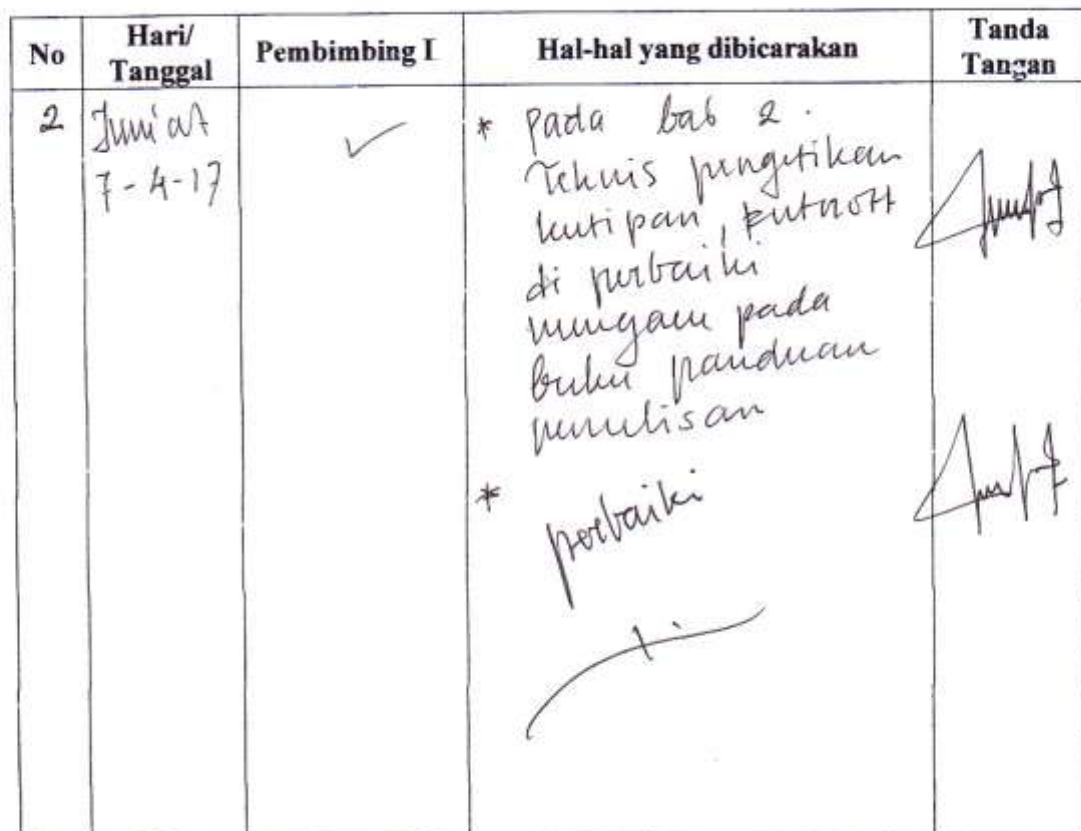 No
Hari/
Tanggal
Pembimbing I
Hal-hal yang dibicarakan
Tanda
Tangan
2
Jum'at
7-4-17
* Pada bab 2.
Teknis pengetikan
kutipan,
di perbaiki
mengacu pada
buku panduan
penulisan
* perbaiki